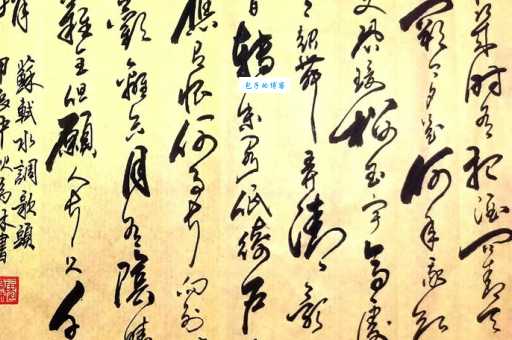 時有把酒問青天
闕今夕是何年我欲
又恐瓊樓玉宇高處
起舞弄清影
轉朱閣低綺戶
應有恨何事長向別
歡離合月有陰晴
難全但願人長久千
蘇軾水調歌頭
書
包子的博客